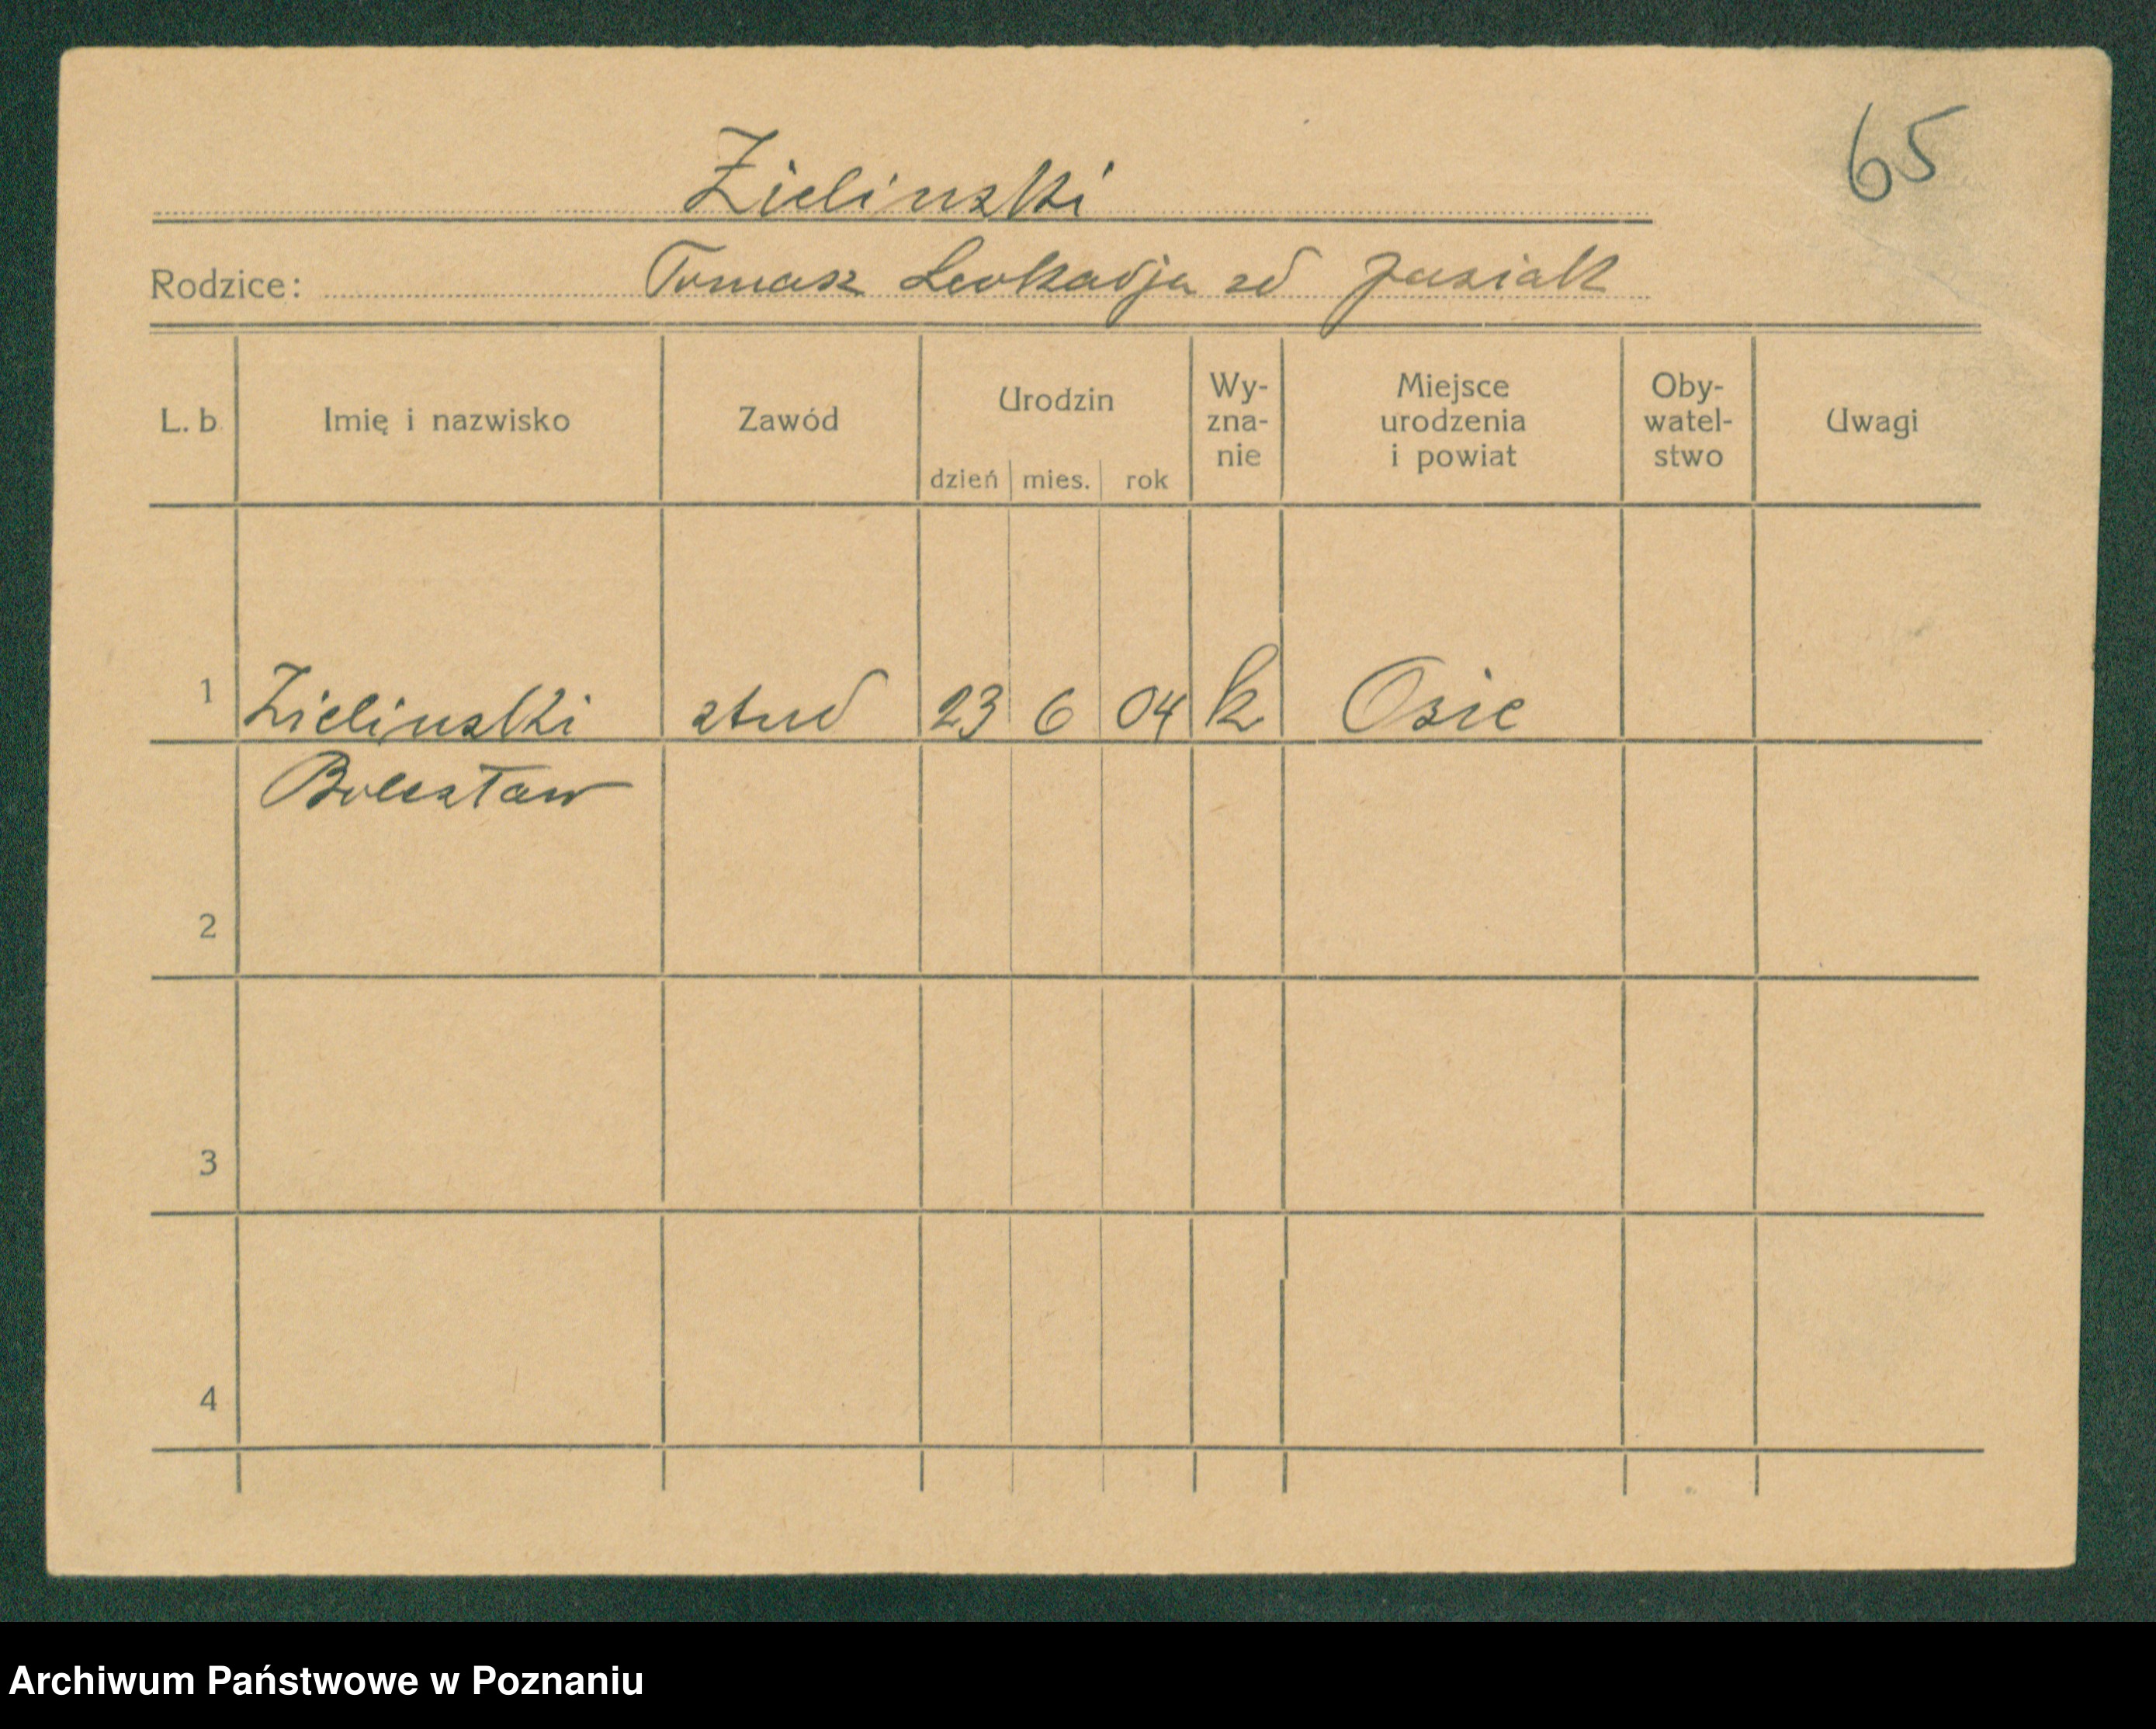 65
Zielinski
Rodzice: Tomasz Leokadja zd Jasiak
L. b. Imię i nazwisko Zawód Urodzin dzień mies. rok Wy-zna-nie Miejsce urodzenia i powiat Oby-watel-stwo Uwagi
1 Zielinski stud 23 6 04 k Osie
Bolesław
2
3
4
Archiwum Państwowe w Poznaniu